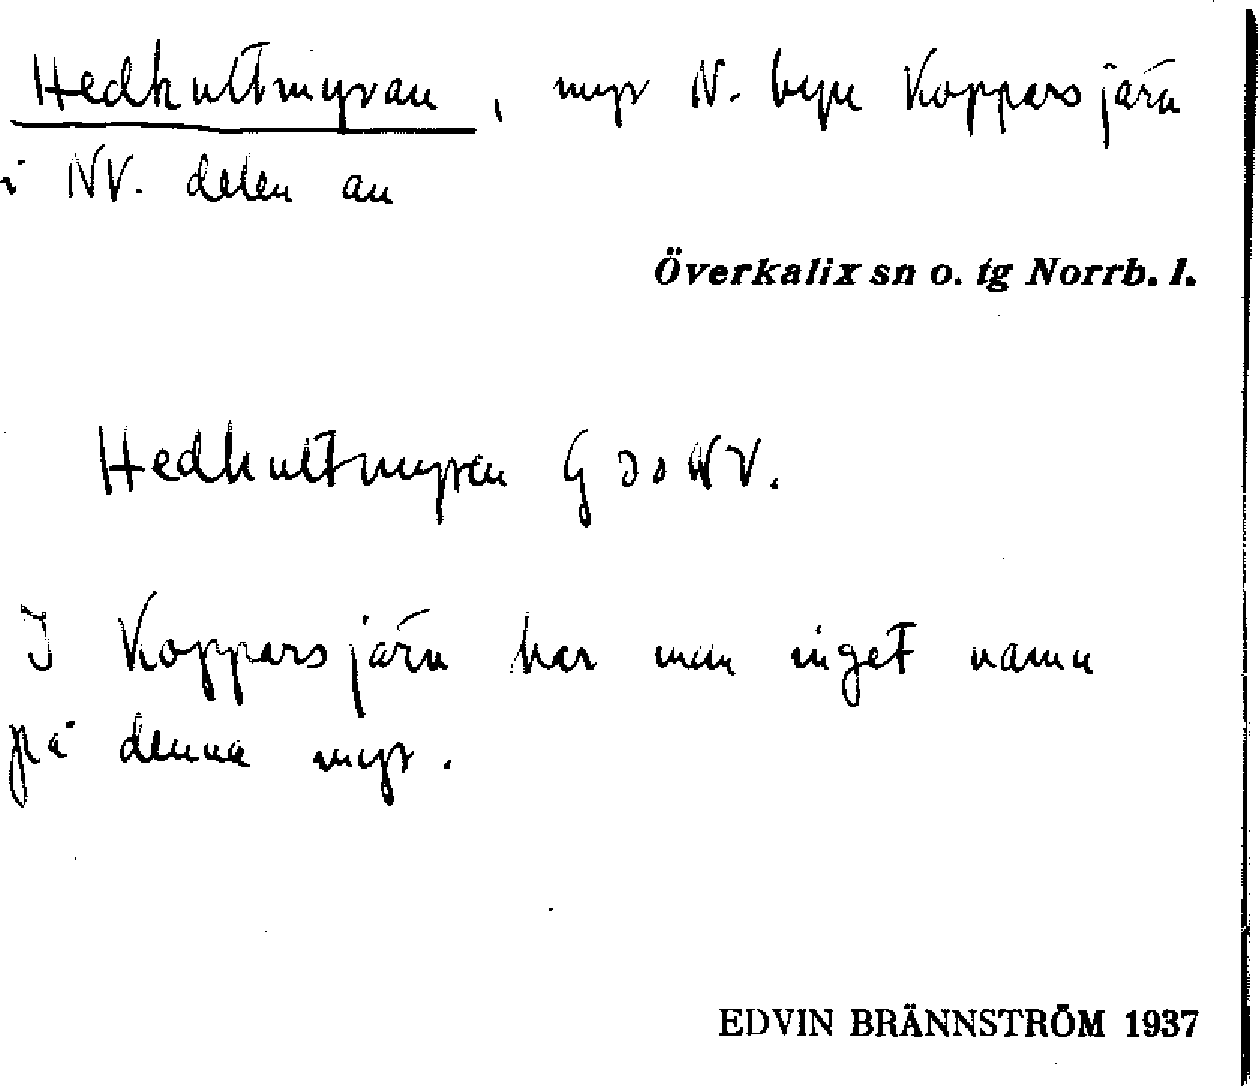 Hedkultmyran, myr N. byn Kopparsjärn
i NV. delen av
Överkalix sn o. tg Norrb. l.
Hedkultmyran G 30 NV.
I Kopparsjärn har man inget namn
på denna myr.
EDVIN BRÄNNSTRÖM 1937